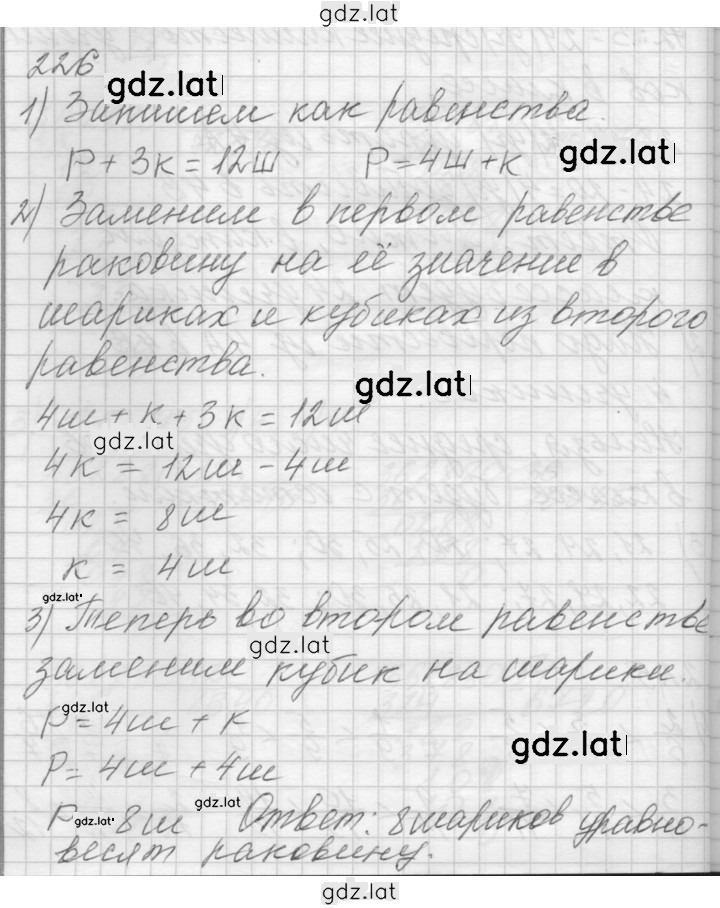 gdz.lat
226
gdz.lat
1) Запишем как равенства.
Р + 3к = 12ш Р = 4ш + к
gdz.lat
2) Заменим в первом равенстве
раковину на её значение в
шариках и кубиках из второго
равенства.
gdz.lat
4ш + к + 3к = 12ш
gdz.lat
4к = 12ш - 4ш
4к = 8ш
к = 4ш
gdz.lat
3) Теперь во втором равенстве
gdz.lat
заменим кубик на шарики.
gdz.lat
Р = 4ш + к
gdz.lat
Р = 4ш + 4ш
gdz.lat
Р gdz.lat 8ш Ответ: 8 шариков уравно-
весят раковину.
gdz.lat